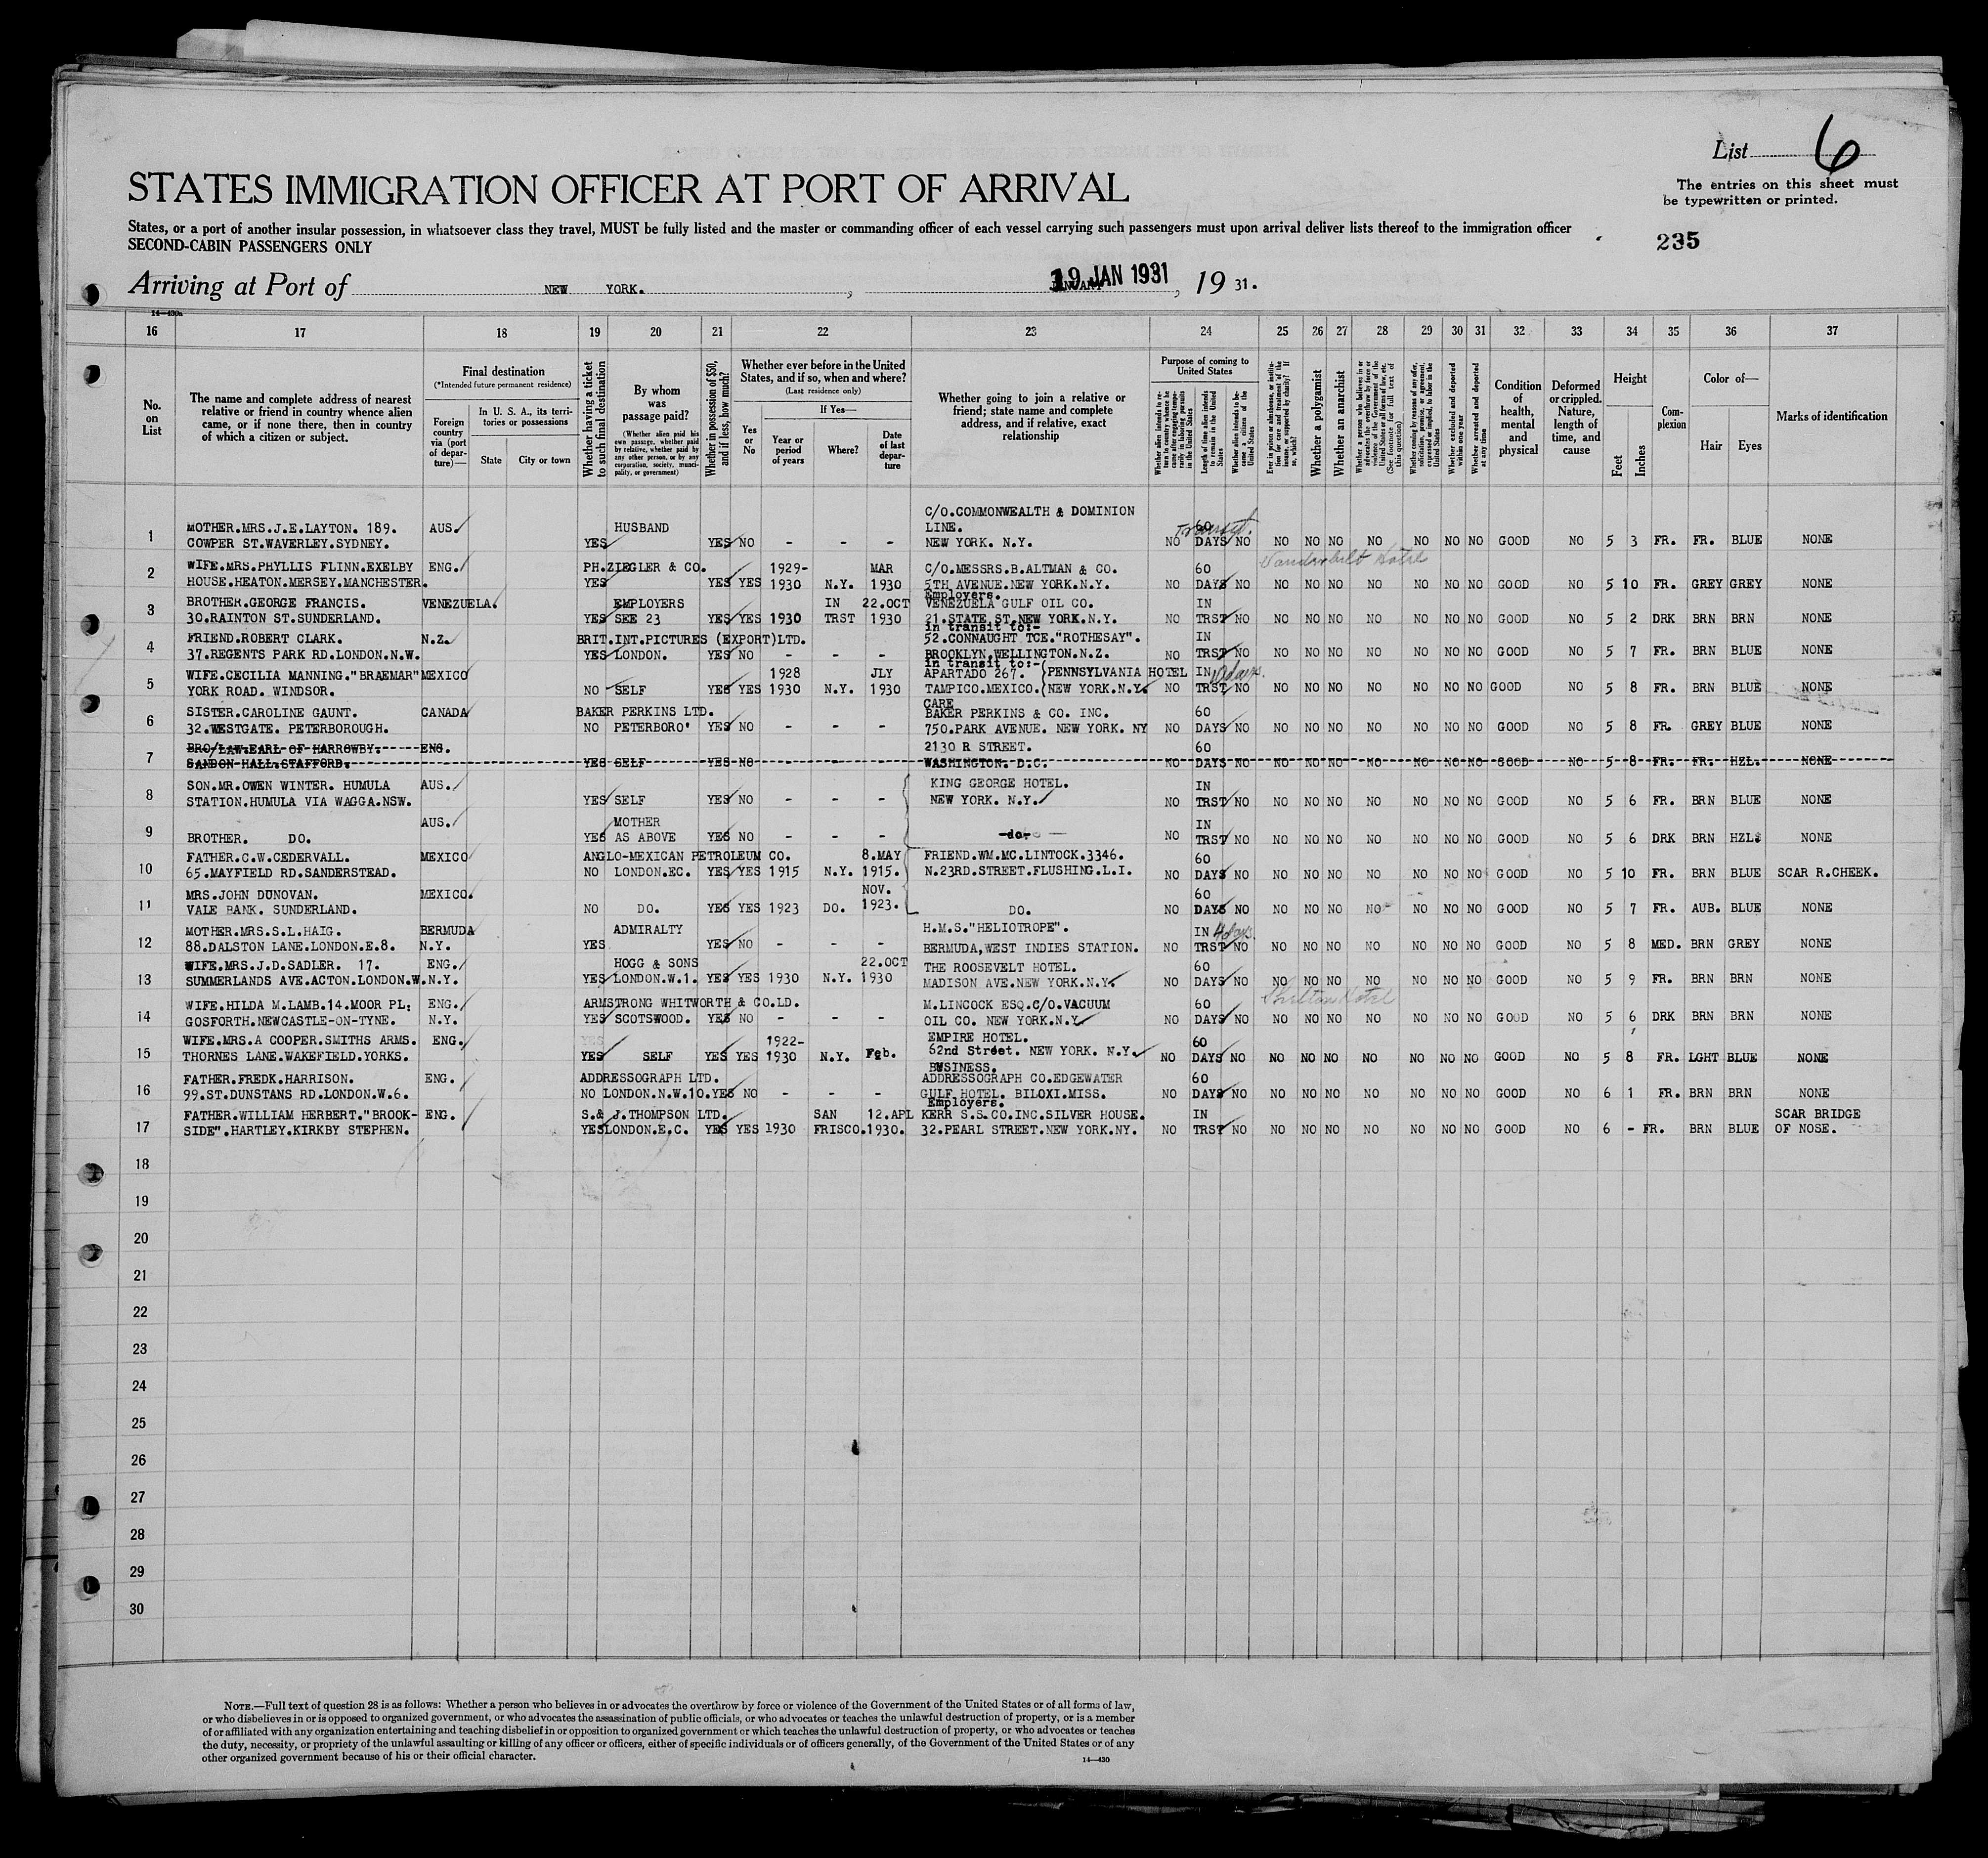 List 6
STATES IMMIGRATION OFFICER AT PORT OF ARRIVAL
The entries on this sheet must
be typewritten or printed.
States, or a port of another insular possession, in whatsoever class they travel, MUST be fully listed and the master or commanding officer of each vessel carrying such passengers must upon arrival deliver lists thereof to the immigration officer
SECOND-CABIN PASSENGERS ONLY
235
Arriving at Port of NEW YORK. , 19 JAN 1931 , 19 31.
14—430a
16 17 18 19 20 21 22 23 24 25 26 27 28 29 30 31 32 33 34 35 36 37
No. on List
The name and complete address of nearest relative or friend in country whence alien came, or if none there, then in country of which a citizen or subject.
Final destination
(*Intended future permanent residence)
Foreign country via (port of departure)—
In U. S. A., its territories or possessions
State City or town
Whether having a ticket to such final destination
By whom was passage paid?
(Whether alien paid his own passage, whether paid by relative, whether paid by any other person, or by any corporation, society, municipality, or government)
Whether in possession of $50, and if less, how much?
Whether ever before in the United States, and if so, when and where?
(Last residence only)
Yes or No
If Yes—
Year or period of years
Where?
Date of last departure
Whether going to join a relative or friend; state name and complete address, and if relative, exact relationship
Purpose of coming to United States
Whether alien intends to return to country whence he came after engaging temporarily in laboring pursuits in the United States
Length of time alien intends to remain in the United States
Whether alien intends to become a citizen of the United States
Ever in prison or almshouse, or institution for care and treatment of the insane, or supported by charity? If so, which?
Whether a polygamist
Whether an anarchist
Whether a person who believes in or advocates the overthrow by force or violence of the Government of the United States or all forms of law, etc. (See footnote for full text of this question)
Whether coming by reasons of any offer, solicitation, promise, or agreement, expressed or implied, to labor in the United States
Whether excluded and deported within one year
Whether arrested and deported at any time
Condition of health, mental and physical
Deformed or crippled. Nature, length of time, and cause
Height
Feet Inches
Complexion
Color of—
Hair Eyes
Marks of identification
C/O.COMMONWEALTH & DOMINION
MOTHER.MRS.J.E.LAYTON. 189. AUS. HUSBAND LINE. 60 Transit.
1 COWPER ST.WAVERLEY.SYDNEY. YES YES NO - - - NEW YORK. N.Y. NO DAYS NO NO NO NO NO NO NO NO GOOD NO 5 3 FR. FR. BLUE NONE
Vanderbilt Hotel
WIFE.MRS.PHYLLIS FLINN.EXELBY ENG. PH.ZIEGLER & CO. 1929- MAR C/O.MESSRS.B.ALTMAN & CO. 60
2 HOUSE.HEATON.MERSEY.MANCHESTER. YES YES YES 1930 N.Y. 1930 5TH AVENUE.NEW YORK.N.Y. NO DAYS NO NO NO NO NO NO NO NO GOOD NO 5 10 FR. GREY GREY NONE
Employers.
BROTHER.GEORGE FRANCIS. VENEZUELA. EMPLOYERS IN 22.OCT VENEZUELA GULF OIL CO. IN
3 30.RAINTON ST.SUNDERLAND. YES SEE 23 YES YES 1930 TRST 1930 21.STATE ST.NEW YORK.N.Y. NO TRST NO NO NO NO NO NO NO NO GOOD NO 5 2 DRK BRN BRN NONE
in transit to:-
FRIEND.ROBERT CLARK. N.Z. BRIT.INT.PICTURES (EXPORT)LTD. 52.CONNAUGHT TCE."ROTHESAY". IN
4 37.REGENTS PARK RD.LONDON.N.W. YES LONDON. YES NO - - - BROOKLYN.WELLINGTON.N.Z. NO TRST NO NO NO NO NO NO NO NO GOOD NO 5 7 FR. BRN BLUE NONE
in transit to:-
WIFE.CECILIA MANNING."BRAEMAR" MEXICO 1928 JLY APARTADO 267. (PENNSYLVANIA HOTEL IN days.
5 YORK ROAD. WINDSOR. NO SELF YES YES 1930 N.Y. 1930 TAMPICO.MEXICO. (NEW YORK.N.Y. NO TRST NO NO NO NO NO NO NO NO GOOD NO 5 8 FR. BRN BLUE NONE
CARE
SISTER.CAROLINE GAUNT. CANADA BAKER PERKINS LTD. BAKER PERKINS & CO. INC. 60
6 32.WESTGATE. PETERBOROUGH. NO PETERBORO' YES NO - - - 750.PARK AVENUE. NEW YORK. NY NO DAYS NO NO NO NO NO NO NO NO GOOD NO 5 8 FR. GREY BLUE NONE
BRO/LAW.EARL OF HARROWBY. ENG. 2130 R STREET. 60
7 SANDON HALL.STAFFORD. YES SELF YES NO - - - WASHINGTON. D.C. NO DAYS NO NO NO NO NO NO NO NO GOOD NO 5 8 FR. FR. HZL. NONE
SON.MR.OWEN WINTER. HUMULA AUS. KING GEORGE HOTEL. IN
8 STATION.HUMULA VIA WAGGA.NSW. YES SELF YES NO - - - NEW YORK. N.Y. NO TRST NO NO NO NO NO NO NO NO GOOD NO 5 6 FR. BRN BLUE NONE
AUS. MOTHER IN
9 BROTHER. DO. YES AS ABOVE YES NO - - - -do- NO TRST NO NO NO NO NO NO NO NO GOOD NO 5 6 DRK BRN HZL. NONE
FATHER.C.W.CEDERVALL. MEXICO ANGLO-MEXICAN PETROLEUM CO. 8.MAY FRIEND.WM.MC.LINTOCK.3346. 60
10 65.MAYFIELD RD.SANDERSTEAD. NO LONDON.EC. YES YES 1915 N.Y. 1915. N.23RD.STREET.FLUSHING.L.I. NO DAYS NO NO NO NO NO NO NO NO GOOD NO 5 10 FR. BRN BLUE SCAR R.CHEEK.
MRS.JOHN DUNOVAN. MEXICO. NOV. 60
11 VALE BANK. SUNDERLAND. NO DO. YES YES 1923 DO. 1923. DO. NO DAYS NO NO NO NO NO NO NO NO GOOD NO 5 7 FR. AUB. BLUE NONE
MOTHER.MRS.S.L.HAIG. BERMUDA ADMIRALTY H.M.S."HELIOTROPE". IN 4 days.
12 88.DALSTON LANE.LONDON.E.8. N.Y. YES YES NO - - - BERMUDA,WEST INDIES STATION. NO TRST NO NO NO NO NO NO NO NO GOOD NO 5 8 MED. BRN GREY NONE
WIFE.MRS.J.D.SADLER. 17. ENG. HOGG & SONS 22.OCT THE ROOSEVELT HOTEL. 60
13 SUMMERLANDS AVE.ACTON.LONDON.W. N.Y. YES LONDON.W.1. YES YES 1930 N.Y. 1930 MADISON AVE.NEW YORK.N.Y. NO DAYS NO NO NO NO NO NO NO NO GOOD NO 5 9 FR. BRN BRN NONE
Shelton Hotel
WIFE.HILDA M.LAMB.14.MOOR PL: ENG. ARMSTRONG WHITWORTH & CO.LD. M.LINCOCK ESQ.C/O.VACUUM 60
14 GOSFORTH.NEWCASTLE-ON-TYNE. N.Y. YES SCOTSWOOD. YES NO - - - OIL CO. NEW YORK.N.Y. NO DAYS NO NO NO NO NO NO NO NO GOOD NO 5 6 DRK BRN BRN NONE
WIFE.MRS.A COOPER.SMITHS ARMS. ENG. 1922- EMPIRE HOTEL. 60
15 THORNES LANE.WAKEFIELD.YORKS. YES SELF YES YES 1930 N.Y. Feb. 62nd Street. NEW YORK. N.Y. NO DAYS NO NO NO NO NO NO NO NO GOOD NO 5 8 FR. LGHT BLUE NONE
BUSINESS.
FATHER.FREDK.HARRISON. ENG. ADDRESSOGRAPH LTD. ADDRESSOGRAPH CO.EDGEWATER 60
16 99.ST.DUNSTANS RD.LONDON.W.6. NO LONDON.N.W.10. YES NO - - - GULF HOTEL. BILOXI.MISS. NO DAYS NO NO NO NO NO NO NO NO GOOD NO 6 1 FR. BRN BRN NONE
Employers.
FATHER.WILLIAM HERBERT."BROOK- ENG. S.& J.THOMPSON LTD. SAN 12.APL KERR S.S.CO.INC.SILVER HOUSE. IN SCAR BRIDGE
17 SIDE".HARTLEY.KIRKBY STEPHEN. YES LONDON.E.C. YES YES 1930 FRISCO. 1930. 32.PEARL STREET.NEW YORK.NY. NO TRST NO NO NO NO NO NO NO NO GOOD NO 6 - FR. BRN BLUE OF NOSE.
18
19
20
21
22
23
24
25
26
27
28
29
30
NOTE.—Full text of question 28 is as follows: Whether a person who believes in or advocates the overthrow by force or violence of the Government of the United States or of all forms of law,
or who disbelieves in or is opposed to organized government, or who advocates the assassination of public officials, or who advocates or teaches the unlawful destruction of property, or is a member
of or affiliated with any organization entertaining and teaching disbelief in or opposition to organized government or which teaches the unlawful destruction of property, or who advocates or teaches
the duty, necessity, or propriety of the unlawful assaulting or killing of any officer or officers, either of specific individuals or of officers generally, of the Government of the United States or of any
other organized government because of his or their official character.
14—430